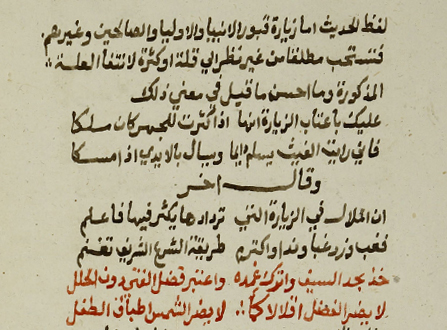 لفظ الحديث اما زيارة قبور الانبيا والاوليا والصالحين وغيرهم
فتستحب مطلقا من غير نظر الي قلة او كثرة لانتفا العلة
المذكورة وما احسن ما قيل في معني ذلك
عليك باغباب الزيارة انها اذا كثرت للهجر كان مسلكا
فاني رايت الغيث يسلم دايما ويسال بالايدي اذا امسكا
وقال اخر
ان الملال في الزيارة التي تردادها يكثر فيها فاعلم
فغب وزد غبا وندا واكثره طريقة الشرع الشريف تغنم
خذ بحد السيف واترك غمده واعتبر فضل الفتي دون الحلل
لا يضر الفضل اقلال كما لا يضر الشمس اطباق الطفل